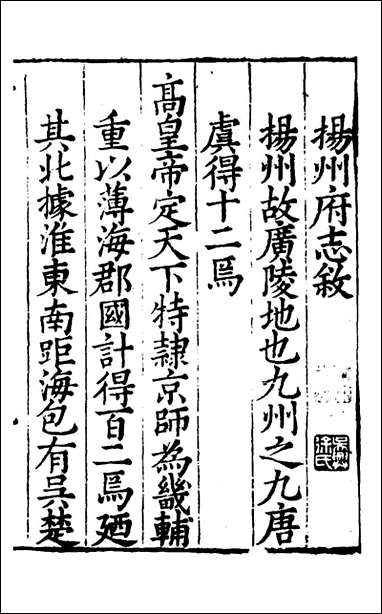 揚州府志敘
揚州故廣陵地也九州之九唐
虞得十二焉
高皇帝定天下特隸京師為畿輔
重以薄海郡國計得百二焉廼
其北據淮東南距海包有吳楚